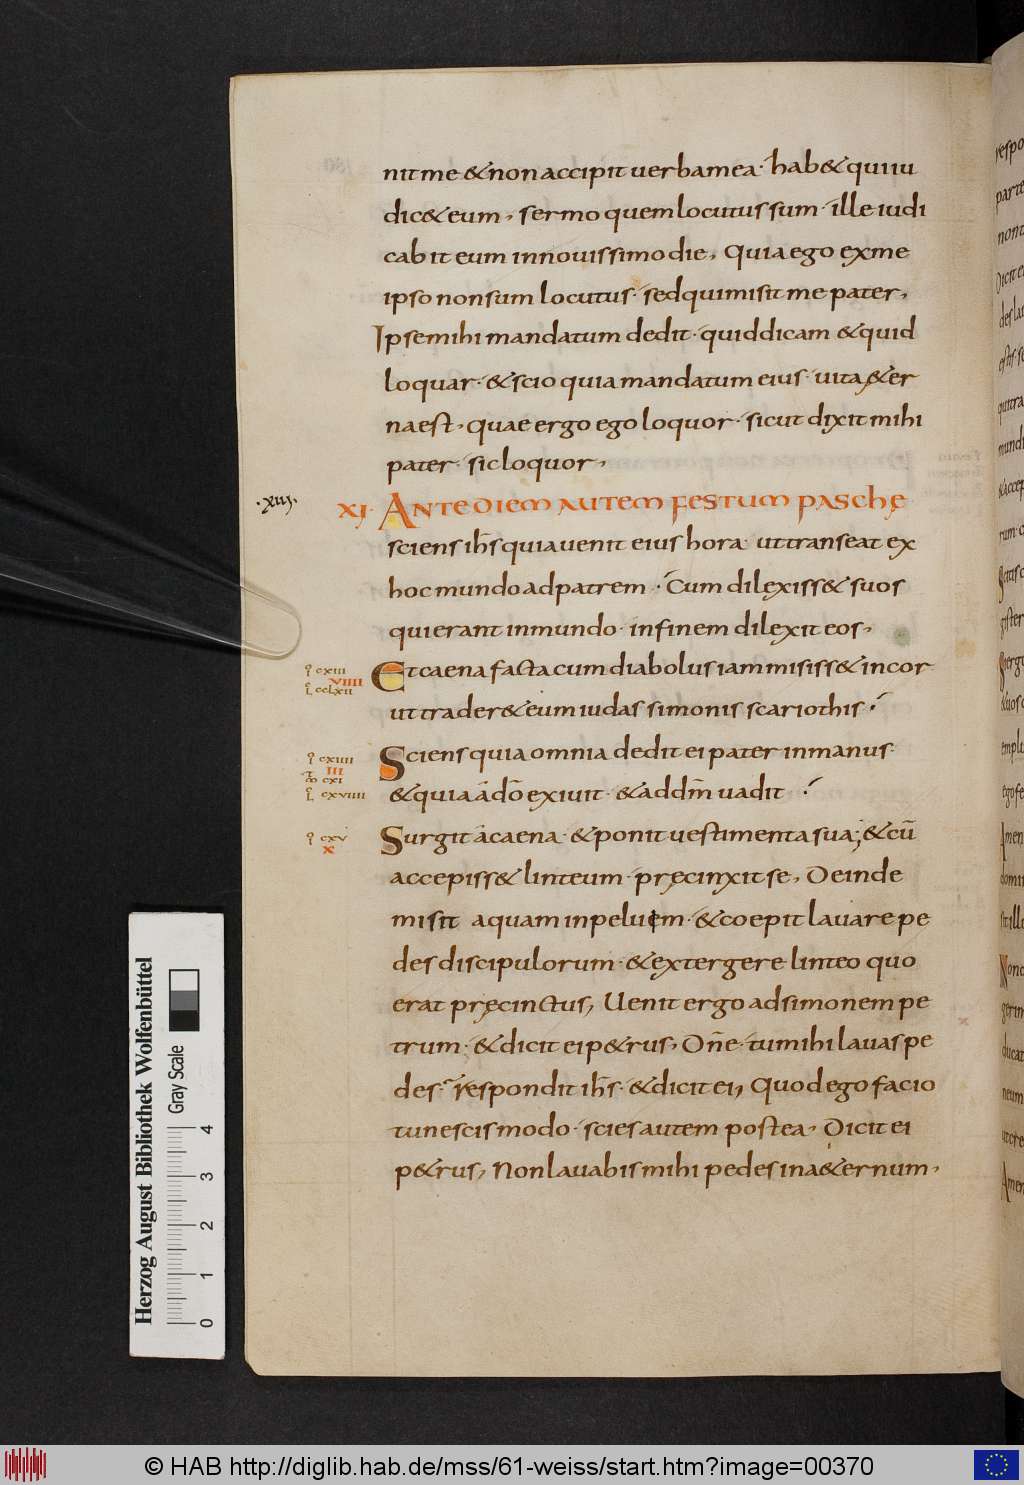 nit me & non accipit uerba mea· hab& qui iu
dic& eum, sermo quem locutus sum· ille iudi
cabit eum in nouissimo die, Quia ego ex me
ipso non sum locutus· sed qui misit me pater,
Ipse mihi mandatum dedit· quid dicam & quid
loquar· & scio quia mandatum eius· uita &er
na est, quae ergo ego loquor· sicut dixit mihi
pater· sic loquor,
·xiii·
XI· ANTE DIEM AUTEM FESTUM PASCHę
sciens ihs quia uenit eius hora· ut transeat ex
hoc mundo ad patrem· Cum dilexiss& suos
qui erant in mundo· in finem dilexit eos,
cxiii
VIIII
cclxii
Et caena facta cum diabolus iam misiss& in cor
ut trader& eum iudas simonis scariothis·
cxiiii
III
cxi
cxviiii
Sciens quia omnia dedit ei pater in manus·
& quia a dō exiuit· & ad dm̄ uadit·
cxv
X
Surgit a caena· & ponit uestimenta sua; & cū
accepiss& linteum· pręcinxit se, Deinde
misit aquam in peluem· & coepit lauare pe
des discipulorum· & extergere linteo quo
erat pręcinctus, Uenit ergo ad simonem pe
trum· & dicit ei p&rus, Dn̄e· tu mihi lauas pe
des· respondit ihs· & dicit ei, Quod ego facio
tu nescis modo· scies autem postea, Dicit ei
p&rus, Non lauabis mihi pedes in a&ernum,
Herzog August Bibliothek Wolfenbüttel
Gray Scale
0 1 2 3 4
© HAB http://diglib.hab.de/mss/61-weiss/start.htm?image=00370